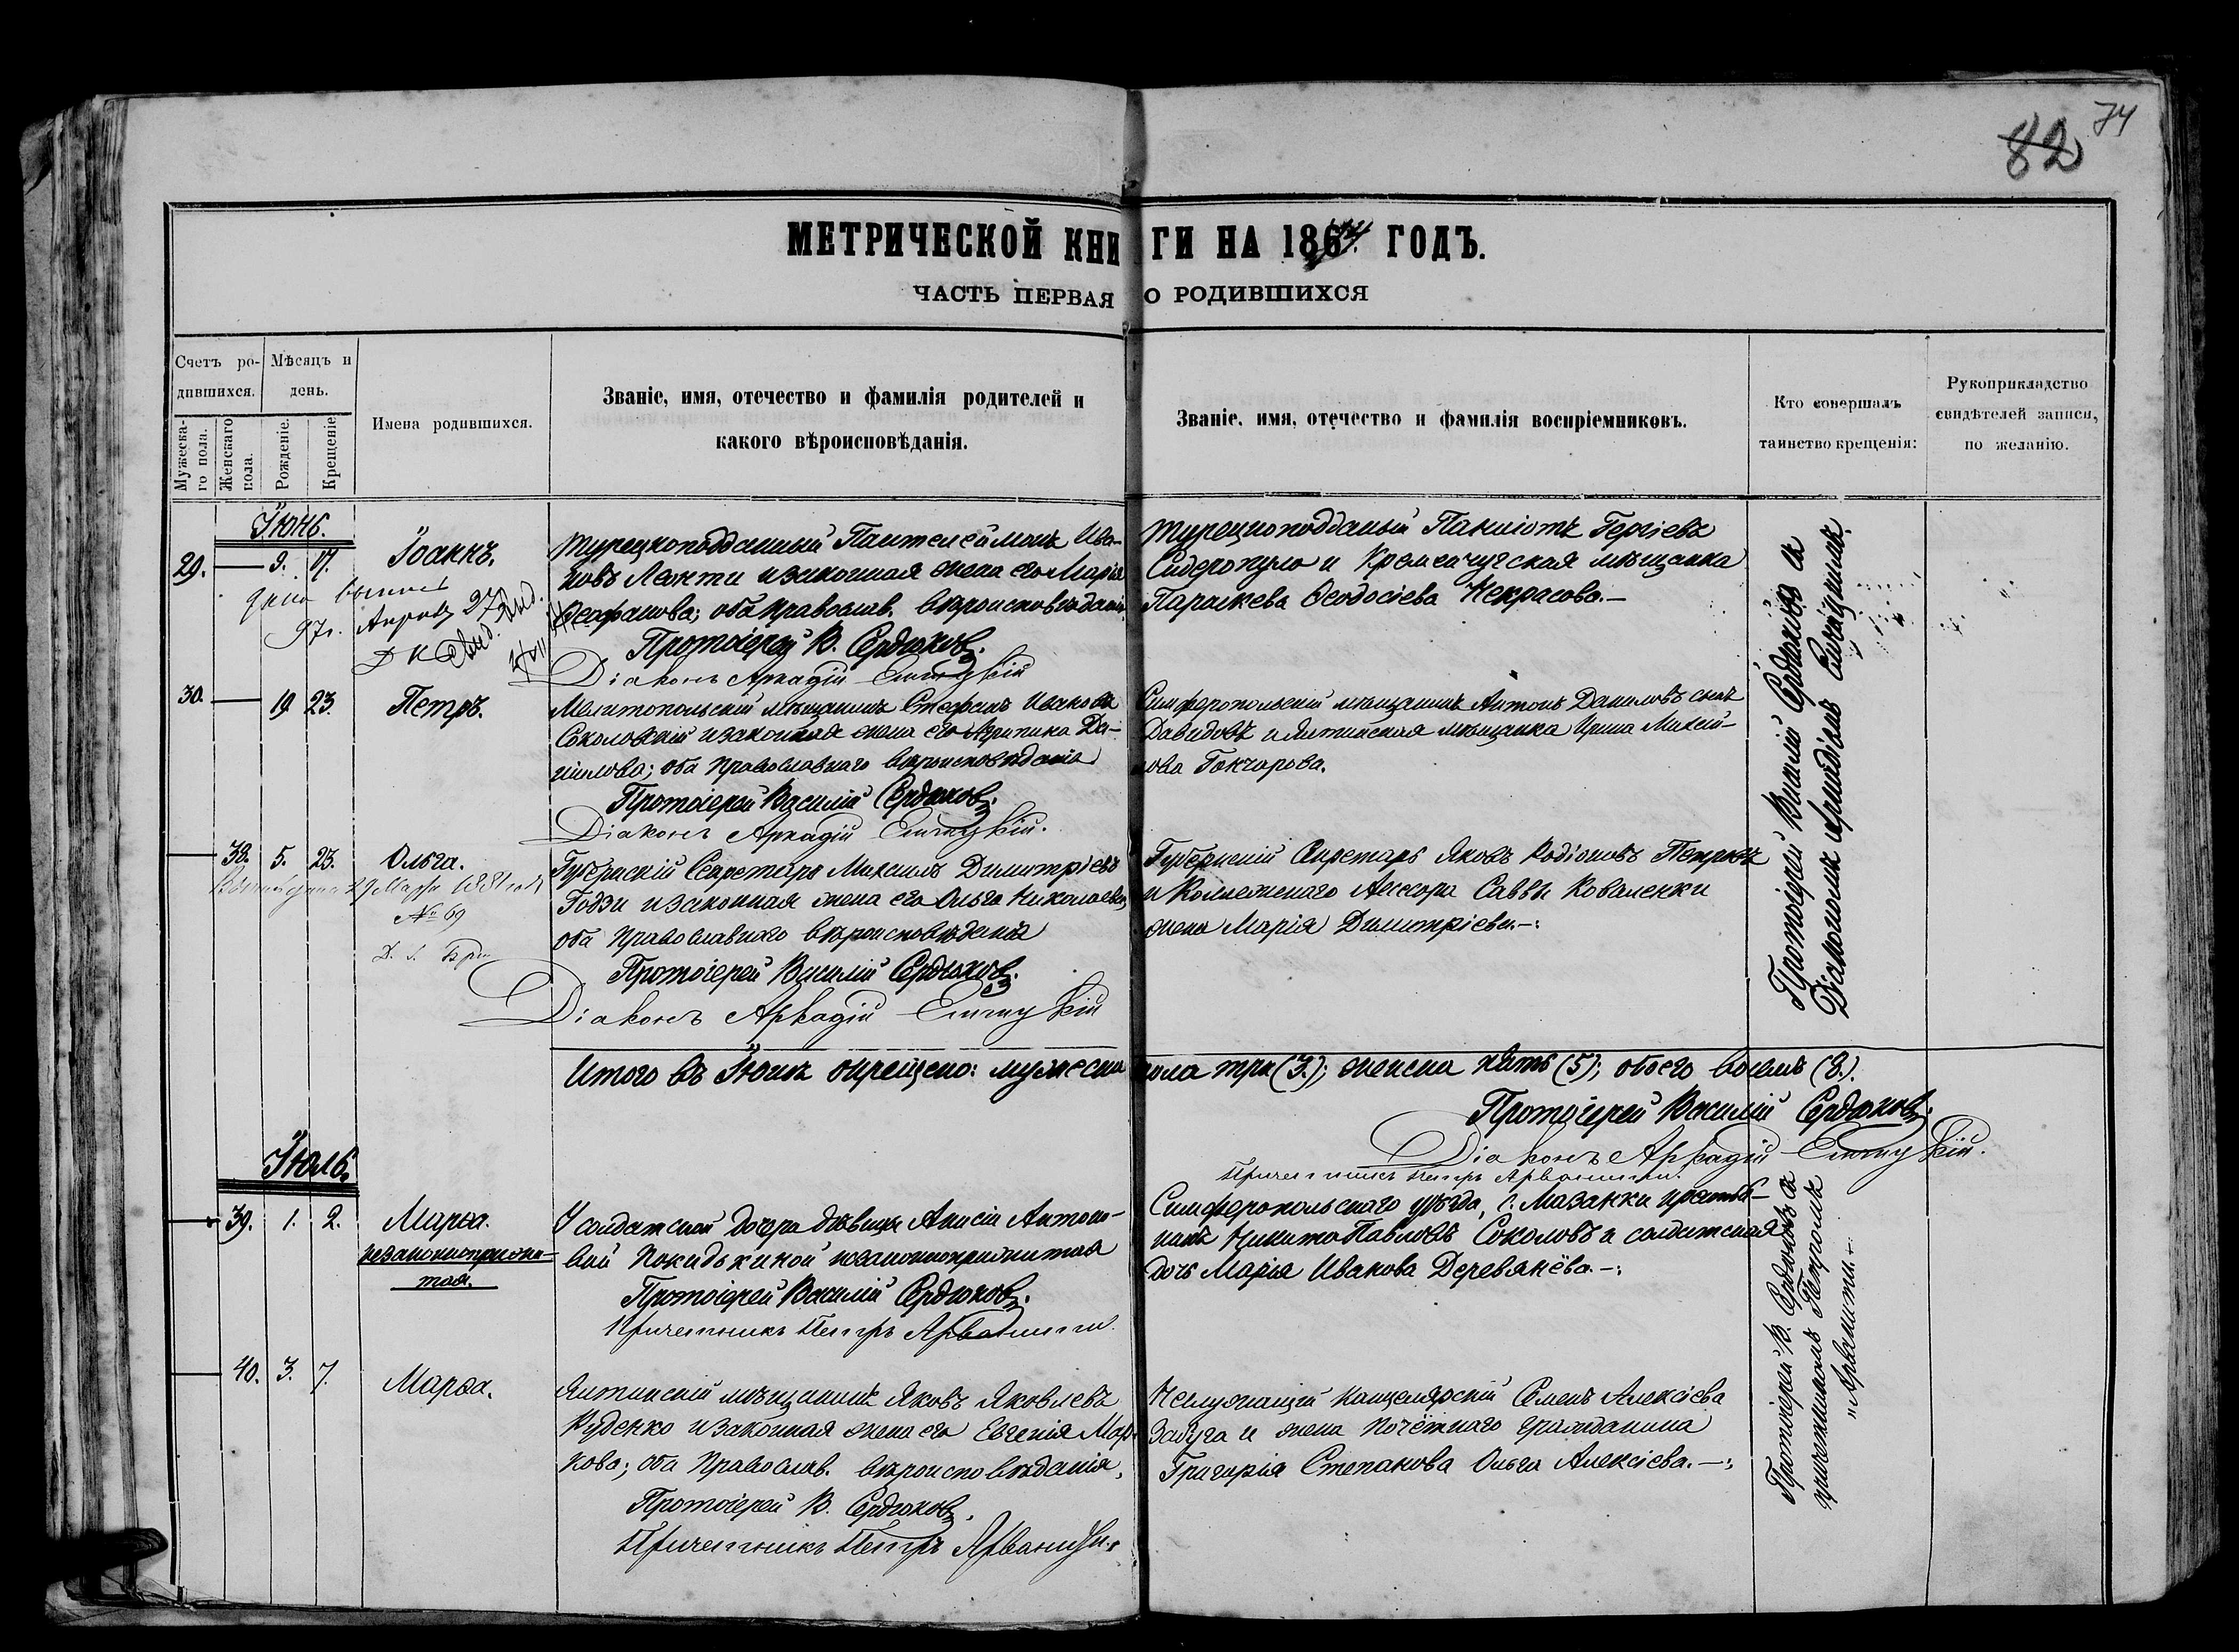 74
82
МЕТРИЧЕСКОЙ КНИГИ НА 1874 ГОДЪ.
ЧАСТЬ ПЕРВАЯ О РОДИВШИХСЯ
Счетъ родившихся.
Мужескаго пола.
Женскаго пола.
Мѣсяцъ и день.
Рожденіе.
Крещеніе
Имена родившихся.
Званіе, имя, отечество и фамилія родителей и
какого вѣроисповѣданія.
Званіе, имя, отечество и фамилія воспріемниковъ.
Кто совершалъ
таинство крещенія:
Рукоприкладство
свидѣтелей записи,
по желанію.
Іюнь.
29. — 9. 17. Іоаннъ.
Турецкоподданный Пантелеймонъ Ива-
новъ Леонти и законная жена его Марія
Ѳеофанова; оба православ. вѣроисповѣданія
Протоіерей В. Сердюковъ.
Діаконъ Аркадій
Турецкоподданый Панаіотъ Гергіевъ
Сидеропуло и Кременчугская мѣщанка
Параскева Ѳеодосіева Некрасова.—
97г.
30. — 19. 23. Петръ.
Мелитопольскій мѣщанинъ Стефанъ Ивановъ
Соколовскій и законная жена его Агрипина Да-
ниилова; оба православнаго вѣроисповѣданія
Протоіерей Василій Сердюковъ.
Діаконъ Аркадій
Симферопольскій мѣщанинъ Антонъ Даниловъ сынъ
Давидовъ и Ялтинская мѣщанка Ирина Михей-
ова Гончарова.
— 38. 5. 23. Ольга.
29 Марта
№ 69
Губернскій Секретарь Михаилъ Димитріевъ
Годзи и законная жена его Ольга Николаева,
оба православнаго вѣроисповѣданія
Протоіерей Василій Сердюковъ.
Діаконъ Аркадій
Губернскій Секретарь Яковъ Родіоновъ Петровъ
и Коллежскаго Ассесора Саввы Коваленки
жена Марія Димитріева.—:
Протоіерей Василій Сердюковъ съ
Діакономъ
Итого въ Іюнѣ окрещено: мужеска пола три (3.); женска пять (5); обоего восемь (8.).
Протоіерей Василій Сердюковъ.
Діаконъ Аркадій
Причетникъ Петръ Арванити.
Іюль.
— 39. 1. 2. Марѳа.
незаконноприжи-
тая.
У солдатской дочери дѣвицы Анисіи Антоно-
вой Покидькиной незаконноприжитая
Протоіерей Василій Сердюковъ.
Причетникъ Петръ Арванити.
Симферопольскаго уѣзда, с. Мазанки крестья-
нинъ Никита Павловъ Соколовъ и солдатская
дочь Марія Иванова Деревянёва.—:
— 40. 3. 7. Марѳа.
Ялтинскій мѣщанинъ Яковъ Яковлевъ
Руденко и законная жена его Евгенія Мар-
кова; оба православ. вѣроисповѣданія.
Протоіерей В. Сердюковъ.
Причетникъ Петръ Арванити.
Неслужащій канцелярскій Семенъ Алексіевъ
Забуга и жена почётнаго гражданина
Григорія Степанова Ольга Алексіева.—:
Протоіерей В. Сердюковъ съ
причетникомъ Петромъ
„Арванити.“